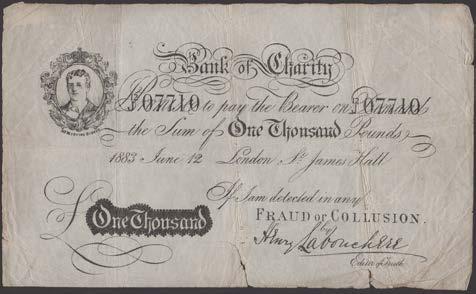 Bank of Charity
I Promise to pay the Bearer on Demand
07710 67710
the Sum of One Thousand Pounds
1883 June 12 London St. James Hall
If I am detected in any
FRAUD or COLLUSION.
£ One Thousand
by
Henry Labouchere
Editor of Truth